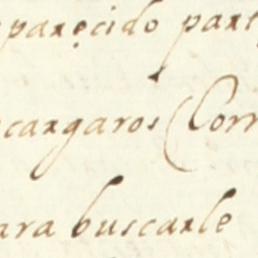 parecido part
cargaros (Corr
ara buscarle